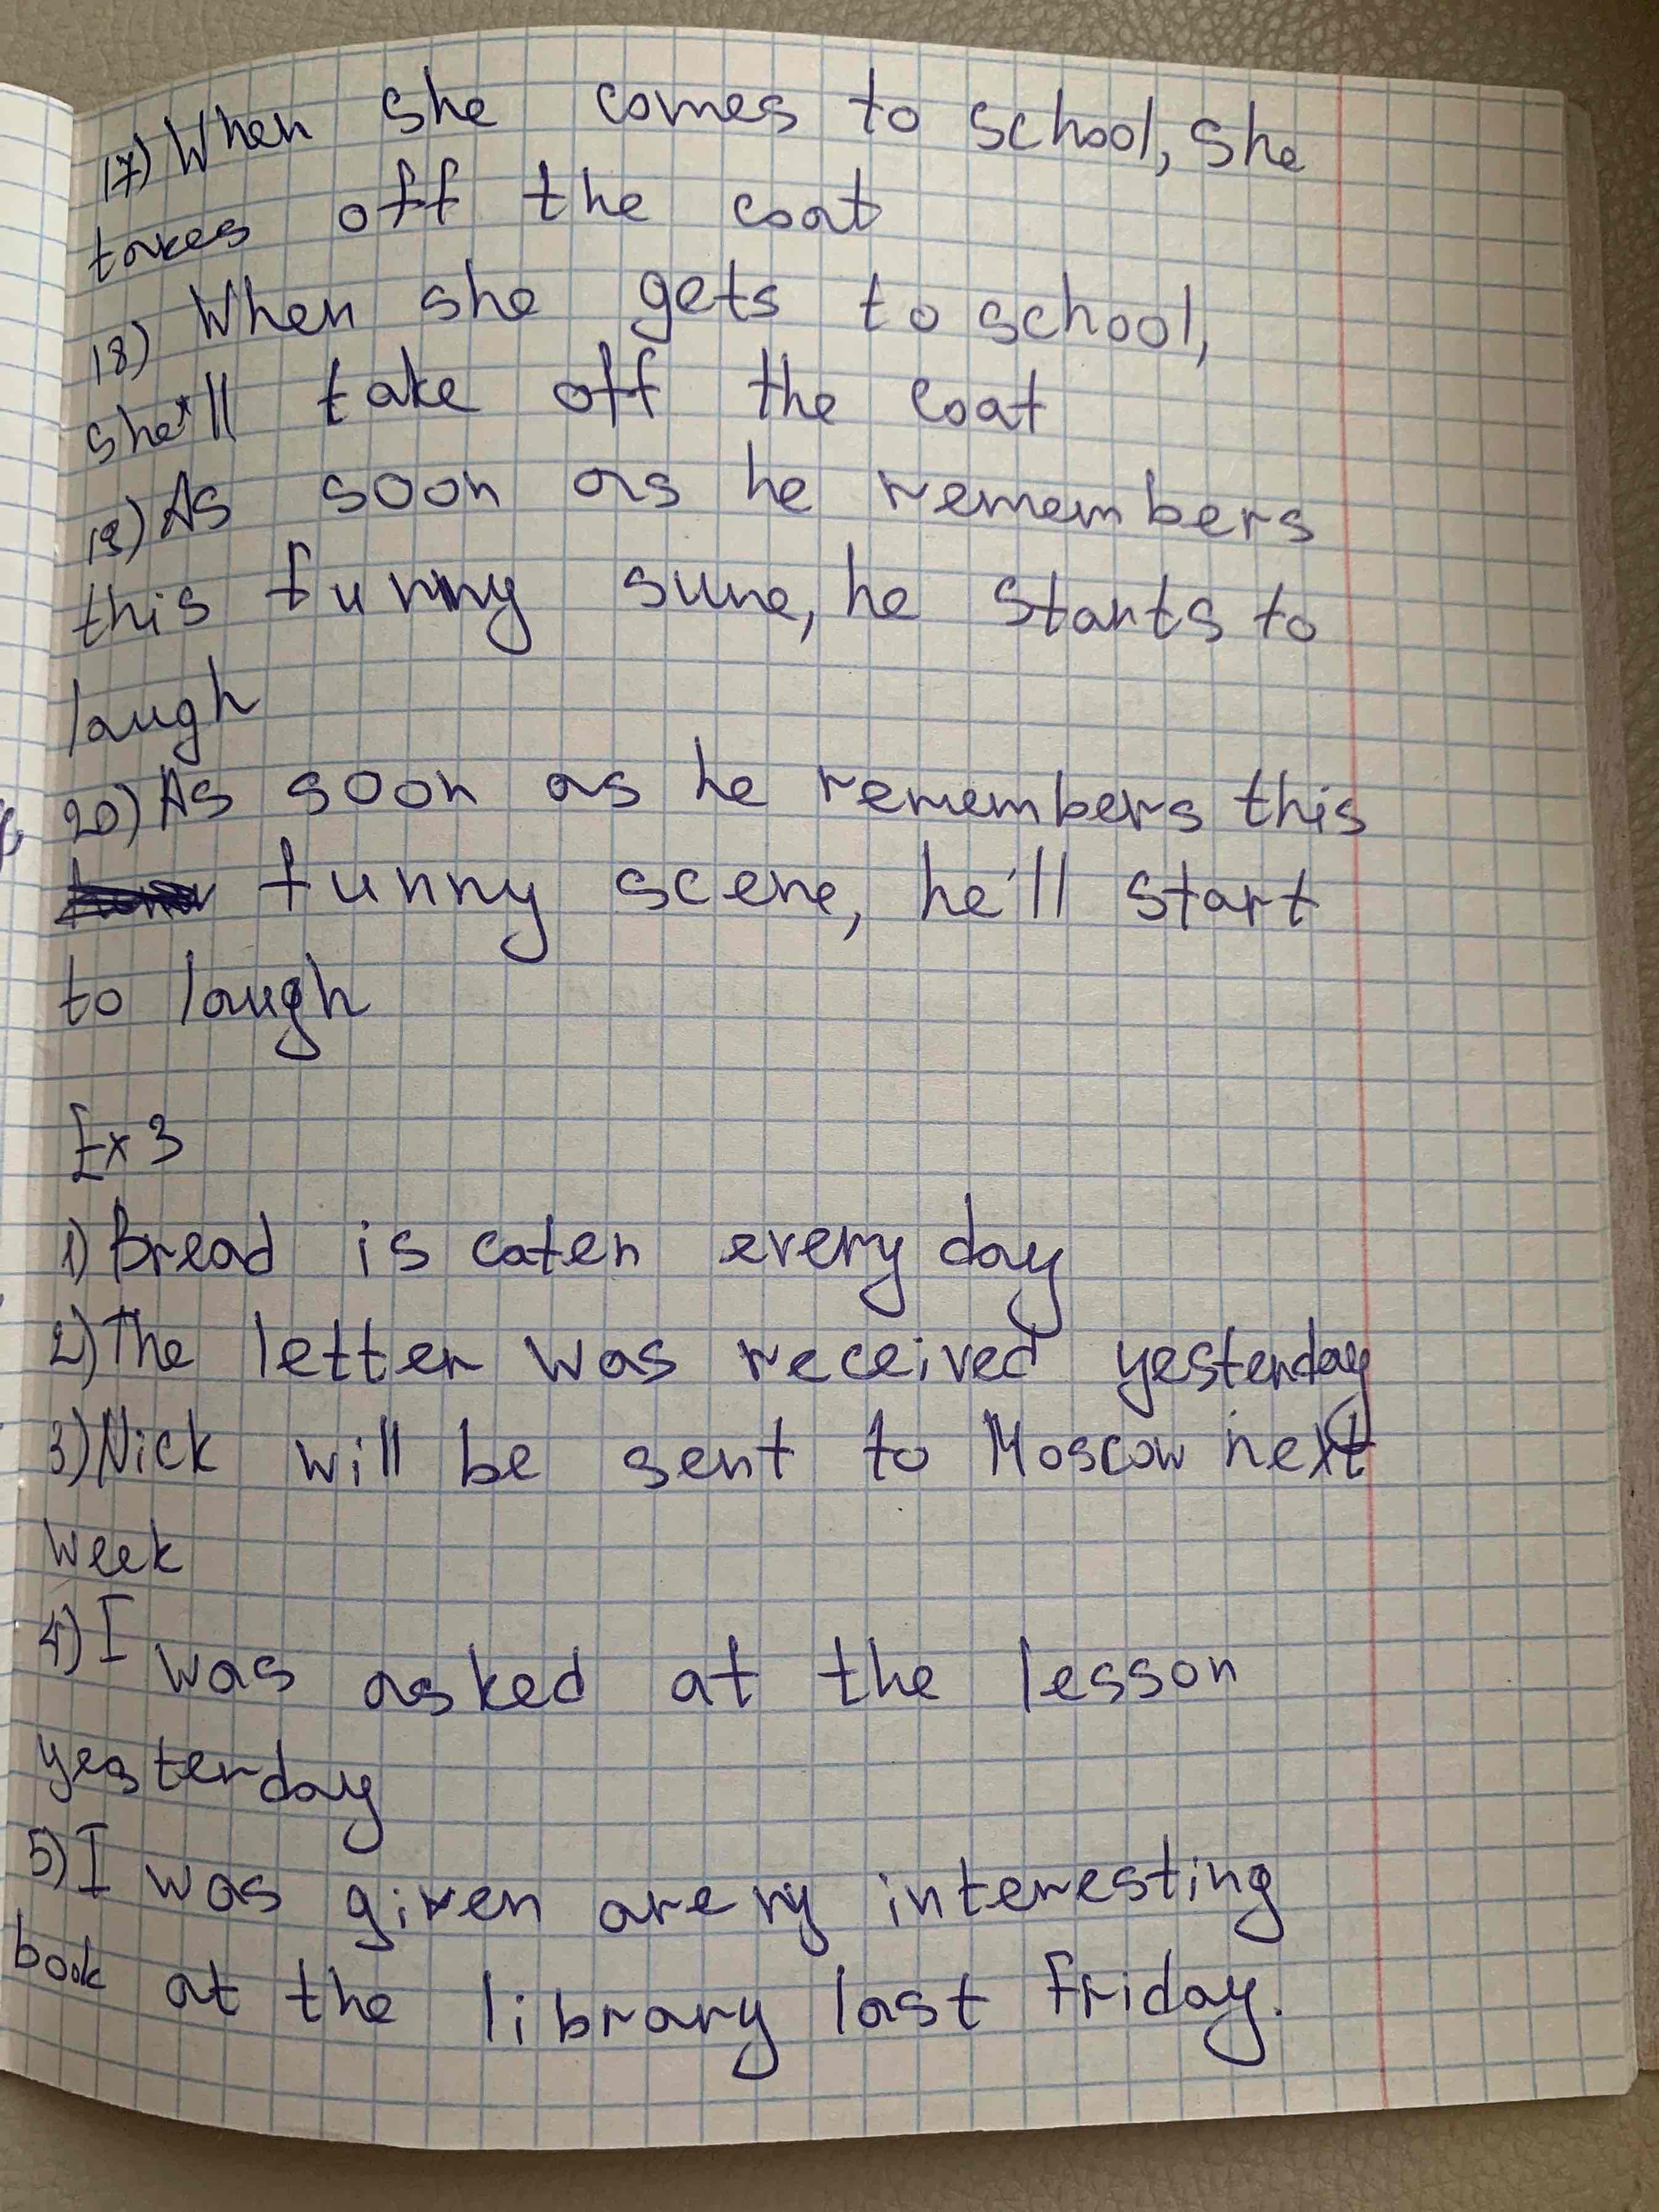 17) When she comes to school, she
takes off the coat
18) When she gets to school,
she'll take off the coat
19) As soon as he remembers
this funny sune, he starts to
laugh
20) As soon as he remembers this
funny scene, he'll start
to laugh
Ex 3
1) Bread is eaten every day
2) The letter was received yesterday
3) Nick will be sent to Moscow next
week
4) I was asked at the lesson
yesterday
5) I was given a very interesting
book at the library last Friday.